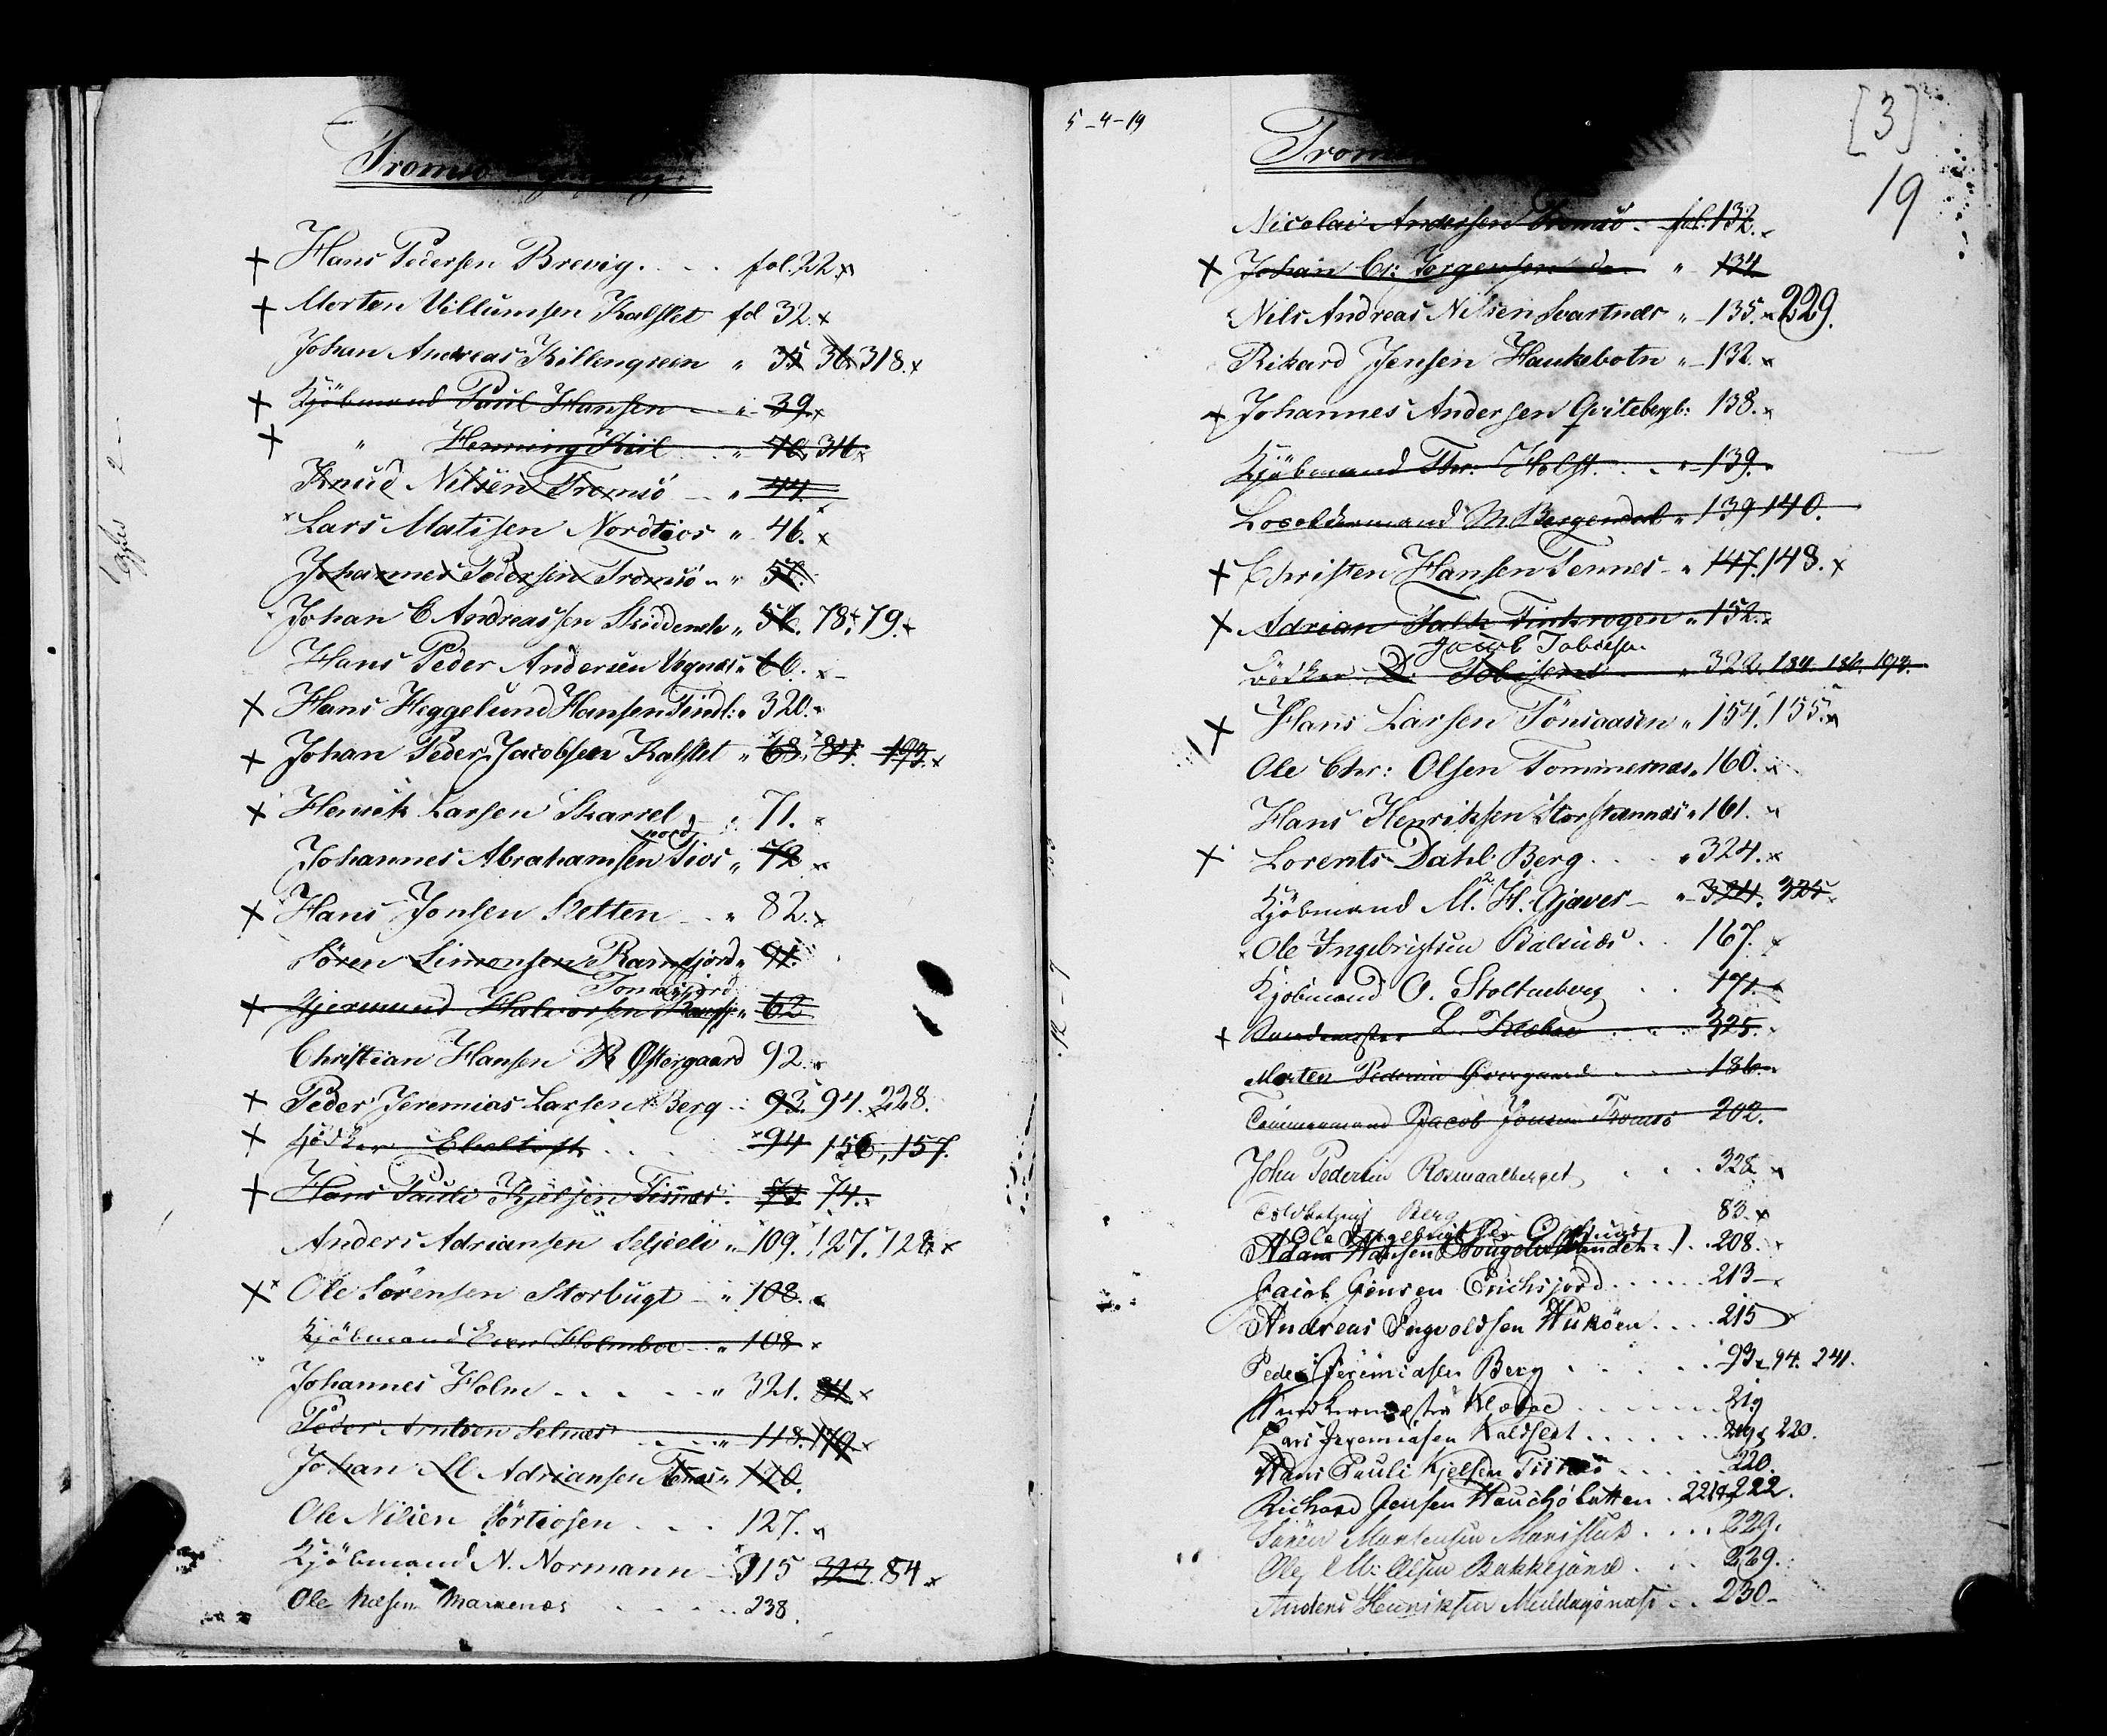 Tromsö
+ Hans Pedersen Brevig . . . . fol. 22. x
+ Morten Villumsen Kalslet fol 32. x
Johan Andreas Killengreen " 35 36. 318. x
+ Kjöbmand Paul Hansen - - " 39. x
+ " Henning Kiil . . " 40. 314.
Knud Nilsen Tromsö - " 44.
x Lars Matisen Nordtios " 46. x
Johannes Pedersen Tromsö - "
Johan C Andreassen " 56. 78. 79. x
Hans Peder Andersen Vognæs " 66. x
+ Hans Heggelund Hansen Tindl: " 320.
+ Johan Peder Jacobsen Kalslet " 68. 84. 193. x
+ Henrik Larsen Skarret - " 71.
nord
Johannes Abrahamsen Tios " 72 x
+ Hans Jonsen Sletten - . " 82. x
Sören Simonsen Ramfjord " 91.
Tomasjord
+ Gjermund Halvorsen Ramfj " 62
Christian Hansen R Østergaard 92.
+ Peder Jeremias Larsen Berg . . 93. 94. 228.
+ Bödker Ebeltoft . . . 94 156, 157.
+ Hans Pauli Kjelsen Tisnæs . 73. 74.
Anders Adriansen Seljeelv " 109. 127. 128. x
+ Ole Sörensen Storbugt - " 108.
Kjöbmand Even Holmboe - " 108 x
Johannes Holm . . . . . " 321. 84. x
Peder Arntsen Selnes . . . " 118. 119. x
Johan M Adriansen " 120.
Ole Nilsen Sörtiosen . . . 127. x
Kjöbmand N. Normann - 315 323. 84. x
Ole Markenes . . . . . 238.
5-4-19
[3]
19
Trom
Nicolai Andersen Tromsö . fol. 132. x
+ Johan Chr: Jorgensen do " 134
Nils Andreas Nilsen Svartnæs " 135. x 229.
Rikard Jensen Haukebotn " 132. x
x Johannes Andersen Qvitebergb: 138. x
Kjöbmand Chr: Holst . . " 139.
M Bergendal " 139 140.
+ Christen Hansen Tennes - " 147. 148. x
+ Adrian Falk Finkrogen " 152.
Jacob Tobiesen
Bödker D. Tobisen " 322. 184. 186. 193.
+ Hans Larsen Tönsaasen " 154. 155. x
Ole Chr: Olsen Tommernæs " 160. x
Hans Henriksen Storstennæs " 161. x
+ Lorents Dahl Berg . . . " 324. x
Kjöbmand M. H. Gjæver - " 324. 325.
x Ole Ingebrigtsen Balsnæs . . 167. x
Kjöbmand O. Stoltenberg . . 171. x
+ L. Klæboe . . . . 325.
Morten Pedersen Övergaard - - - 186.
Tömmermand Jacob Jönsen Tromsö 202.
John Pedersen Rosmaalberget . . . 328 x
Berg 83. x
Ole Ingebrigtsen
Adam Hansen . . 208.
Jacob Jensen Erichsjord . . . . . . 213 -
Andreas Ingvoldsen . . . . 215
Peder Jeremiasen Berg . . . . . 93. 94. 241.
Klæboe . . . . . . . 219
Lars Jeremiasen Kaldslet . . . . . . 219 220.
Hans Pauli Kjelsen Tisnæs . . . . . 220.
Richard Jensen . 221 222.
Sören Mortensen . . . . 229.
Ole M: Olsen Bakkejord . . . 229.
Anders Henriksen . . 230 -